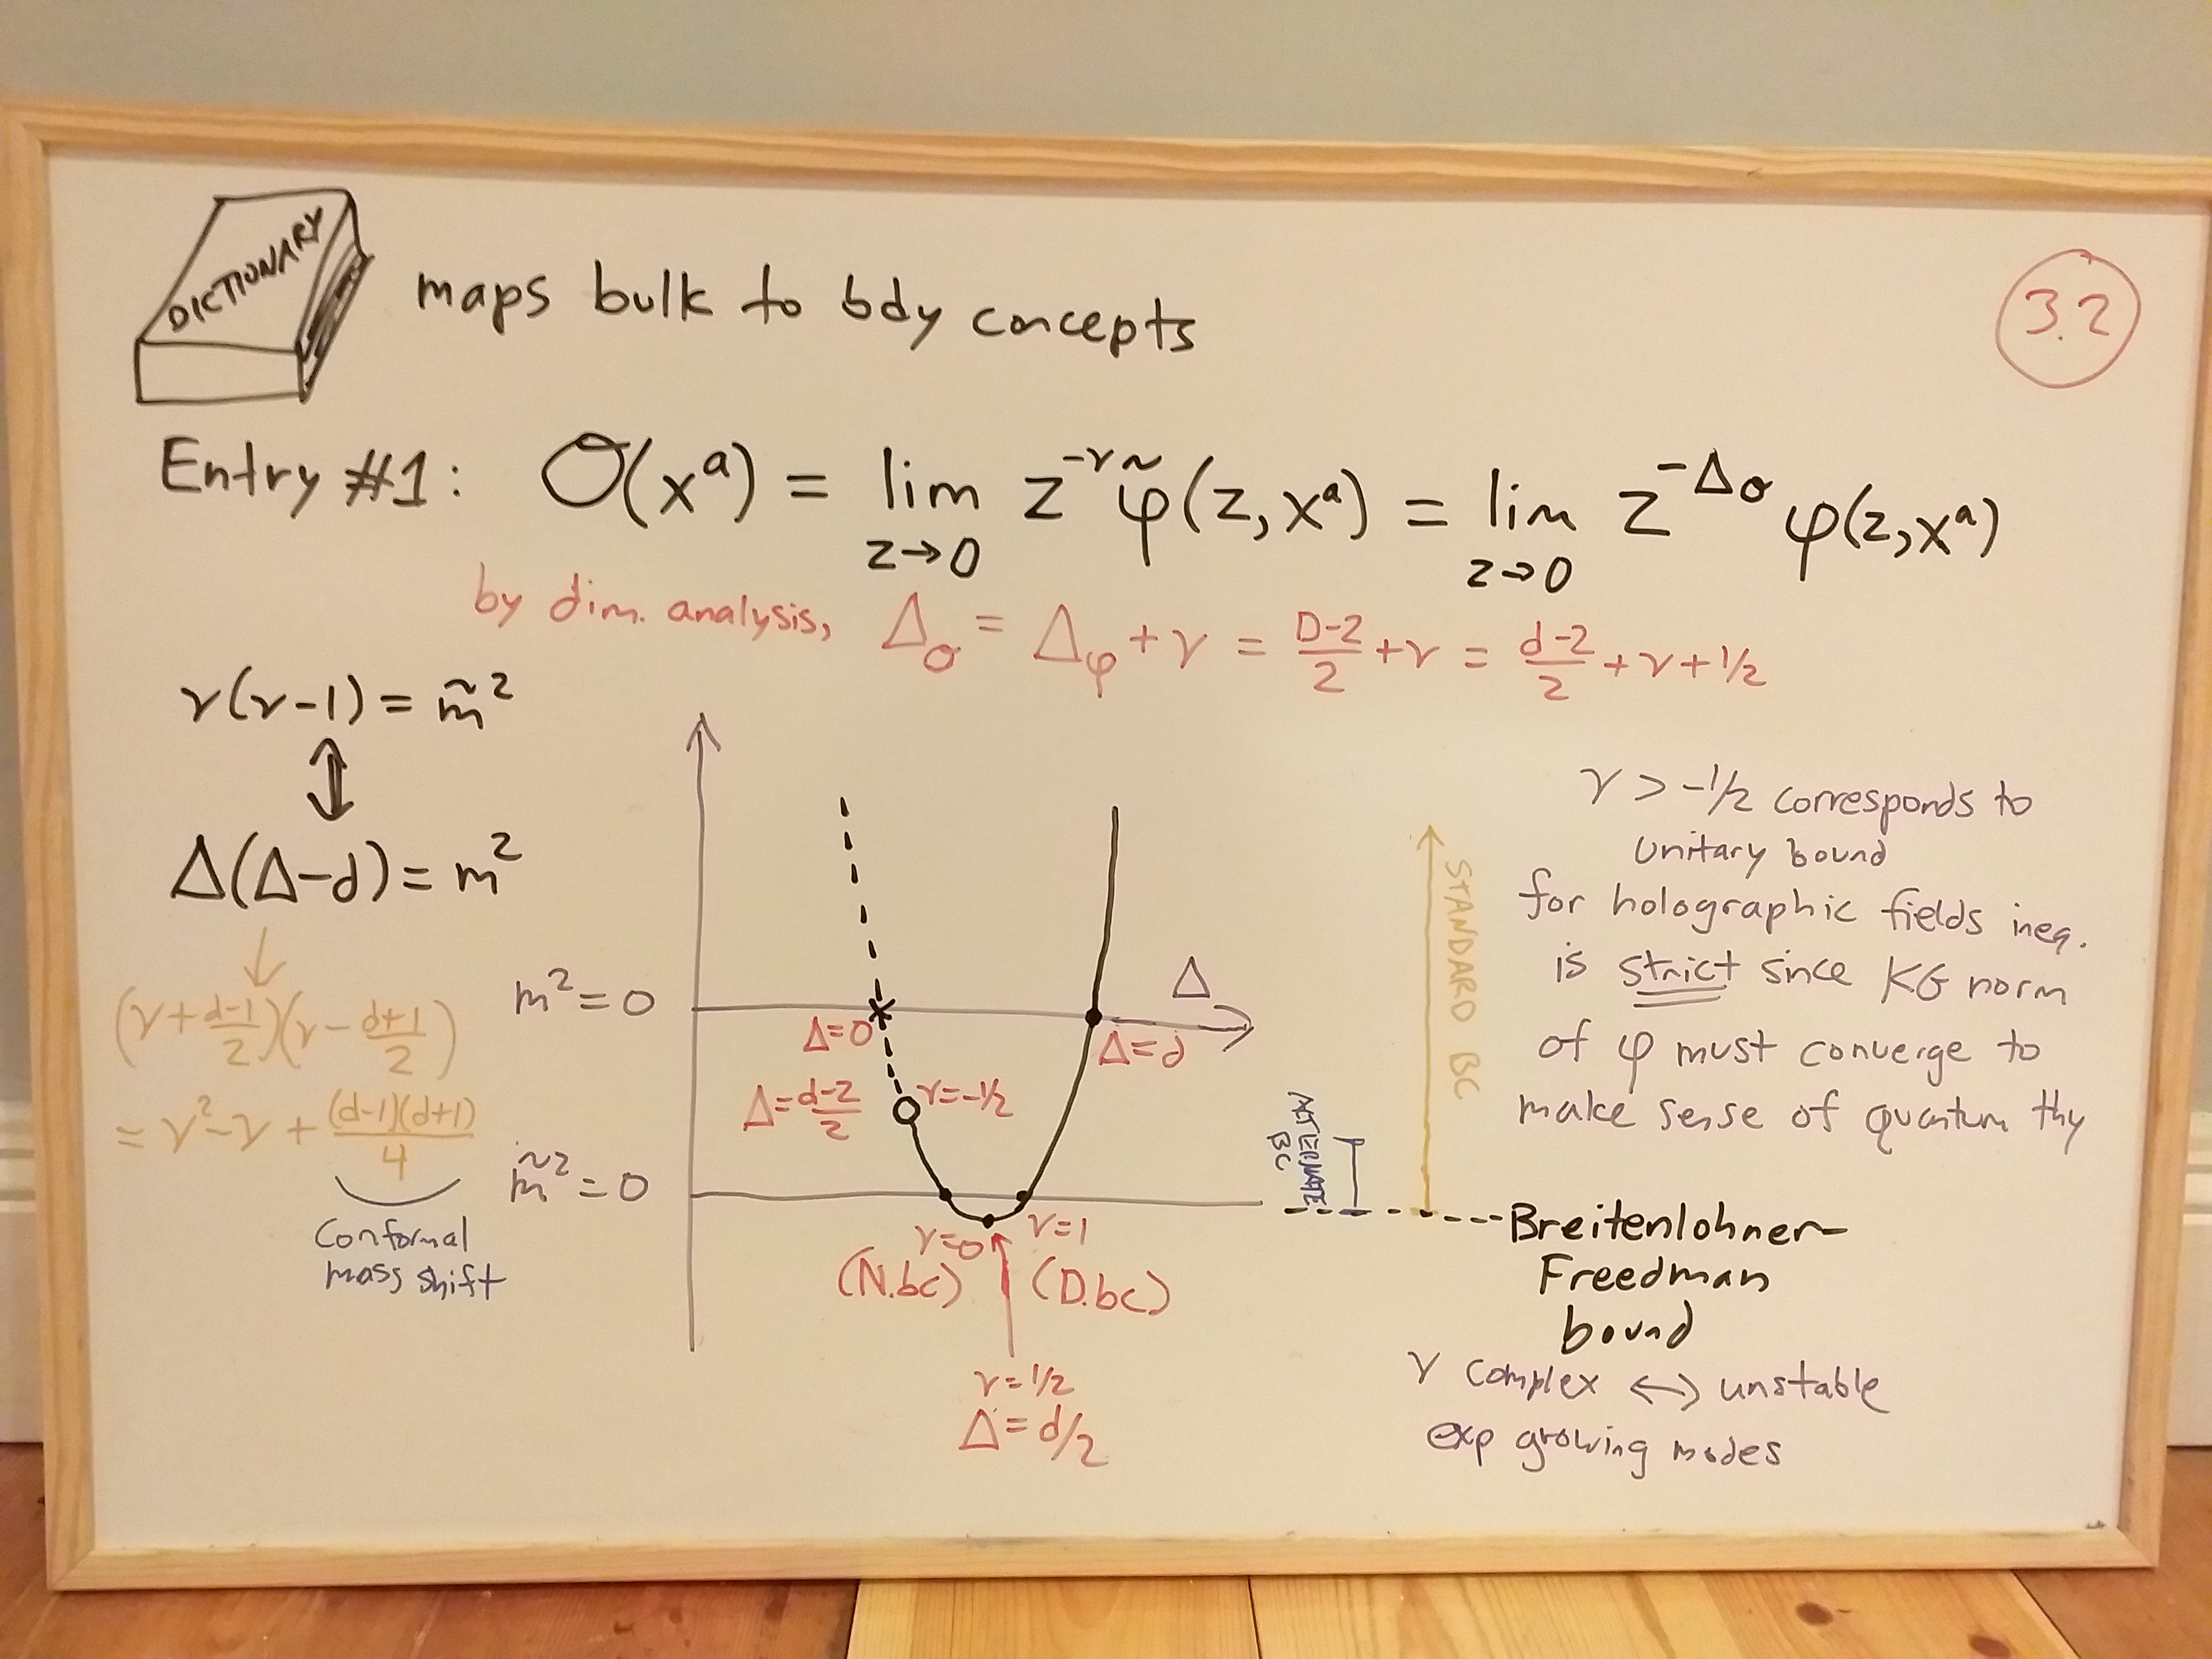 DICTIONARY
maps bulk to bdy concepts
3.2
Entry #1: O(xᵃ) = lim z→0 z^-ν φ̃(z, xᵃ) = lim z→0 z^-Δ_O φ(z, xᵃ)
by dim. analysis, Δ_O = Δ_φ + ν = (D-2)/2 + ν = (d-2)/2 + ν + 1/2
ν(ν-1) = m̃²
⇕
Δ(Δ-d) = m²
↓
(ν + (d-1)/2)(ν - (d+1)/2)
= ν² - ν + (d-1)(d+1)/4
Conformal
mass shift
m² = 0
m̃² = 0
Δ
Δ=0
Δ=d
Δ=(d-2)/2
ν=-1/2
ν=0
(N.bc)
ν=1
(D.bc)
ν=1/2
Δ=d/2
ALTERNATE
BC
STANDARD BC
ν > -1/2 corresponds to
unitary bound
for holographic fields ineq.
is strict since KG norm
of φ must converge to
make sense of quantum thy
Breitenlohner-
Freedman
bound
ν complex ↔ unstable
exp growing modes